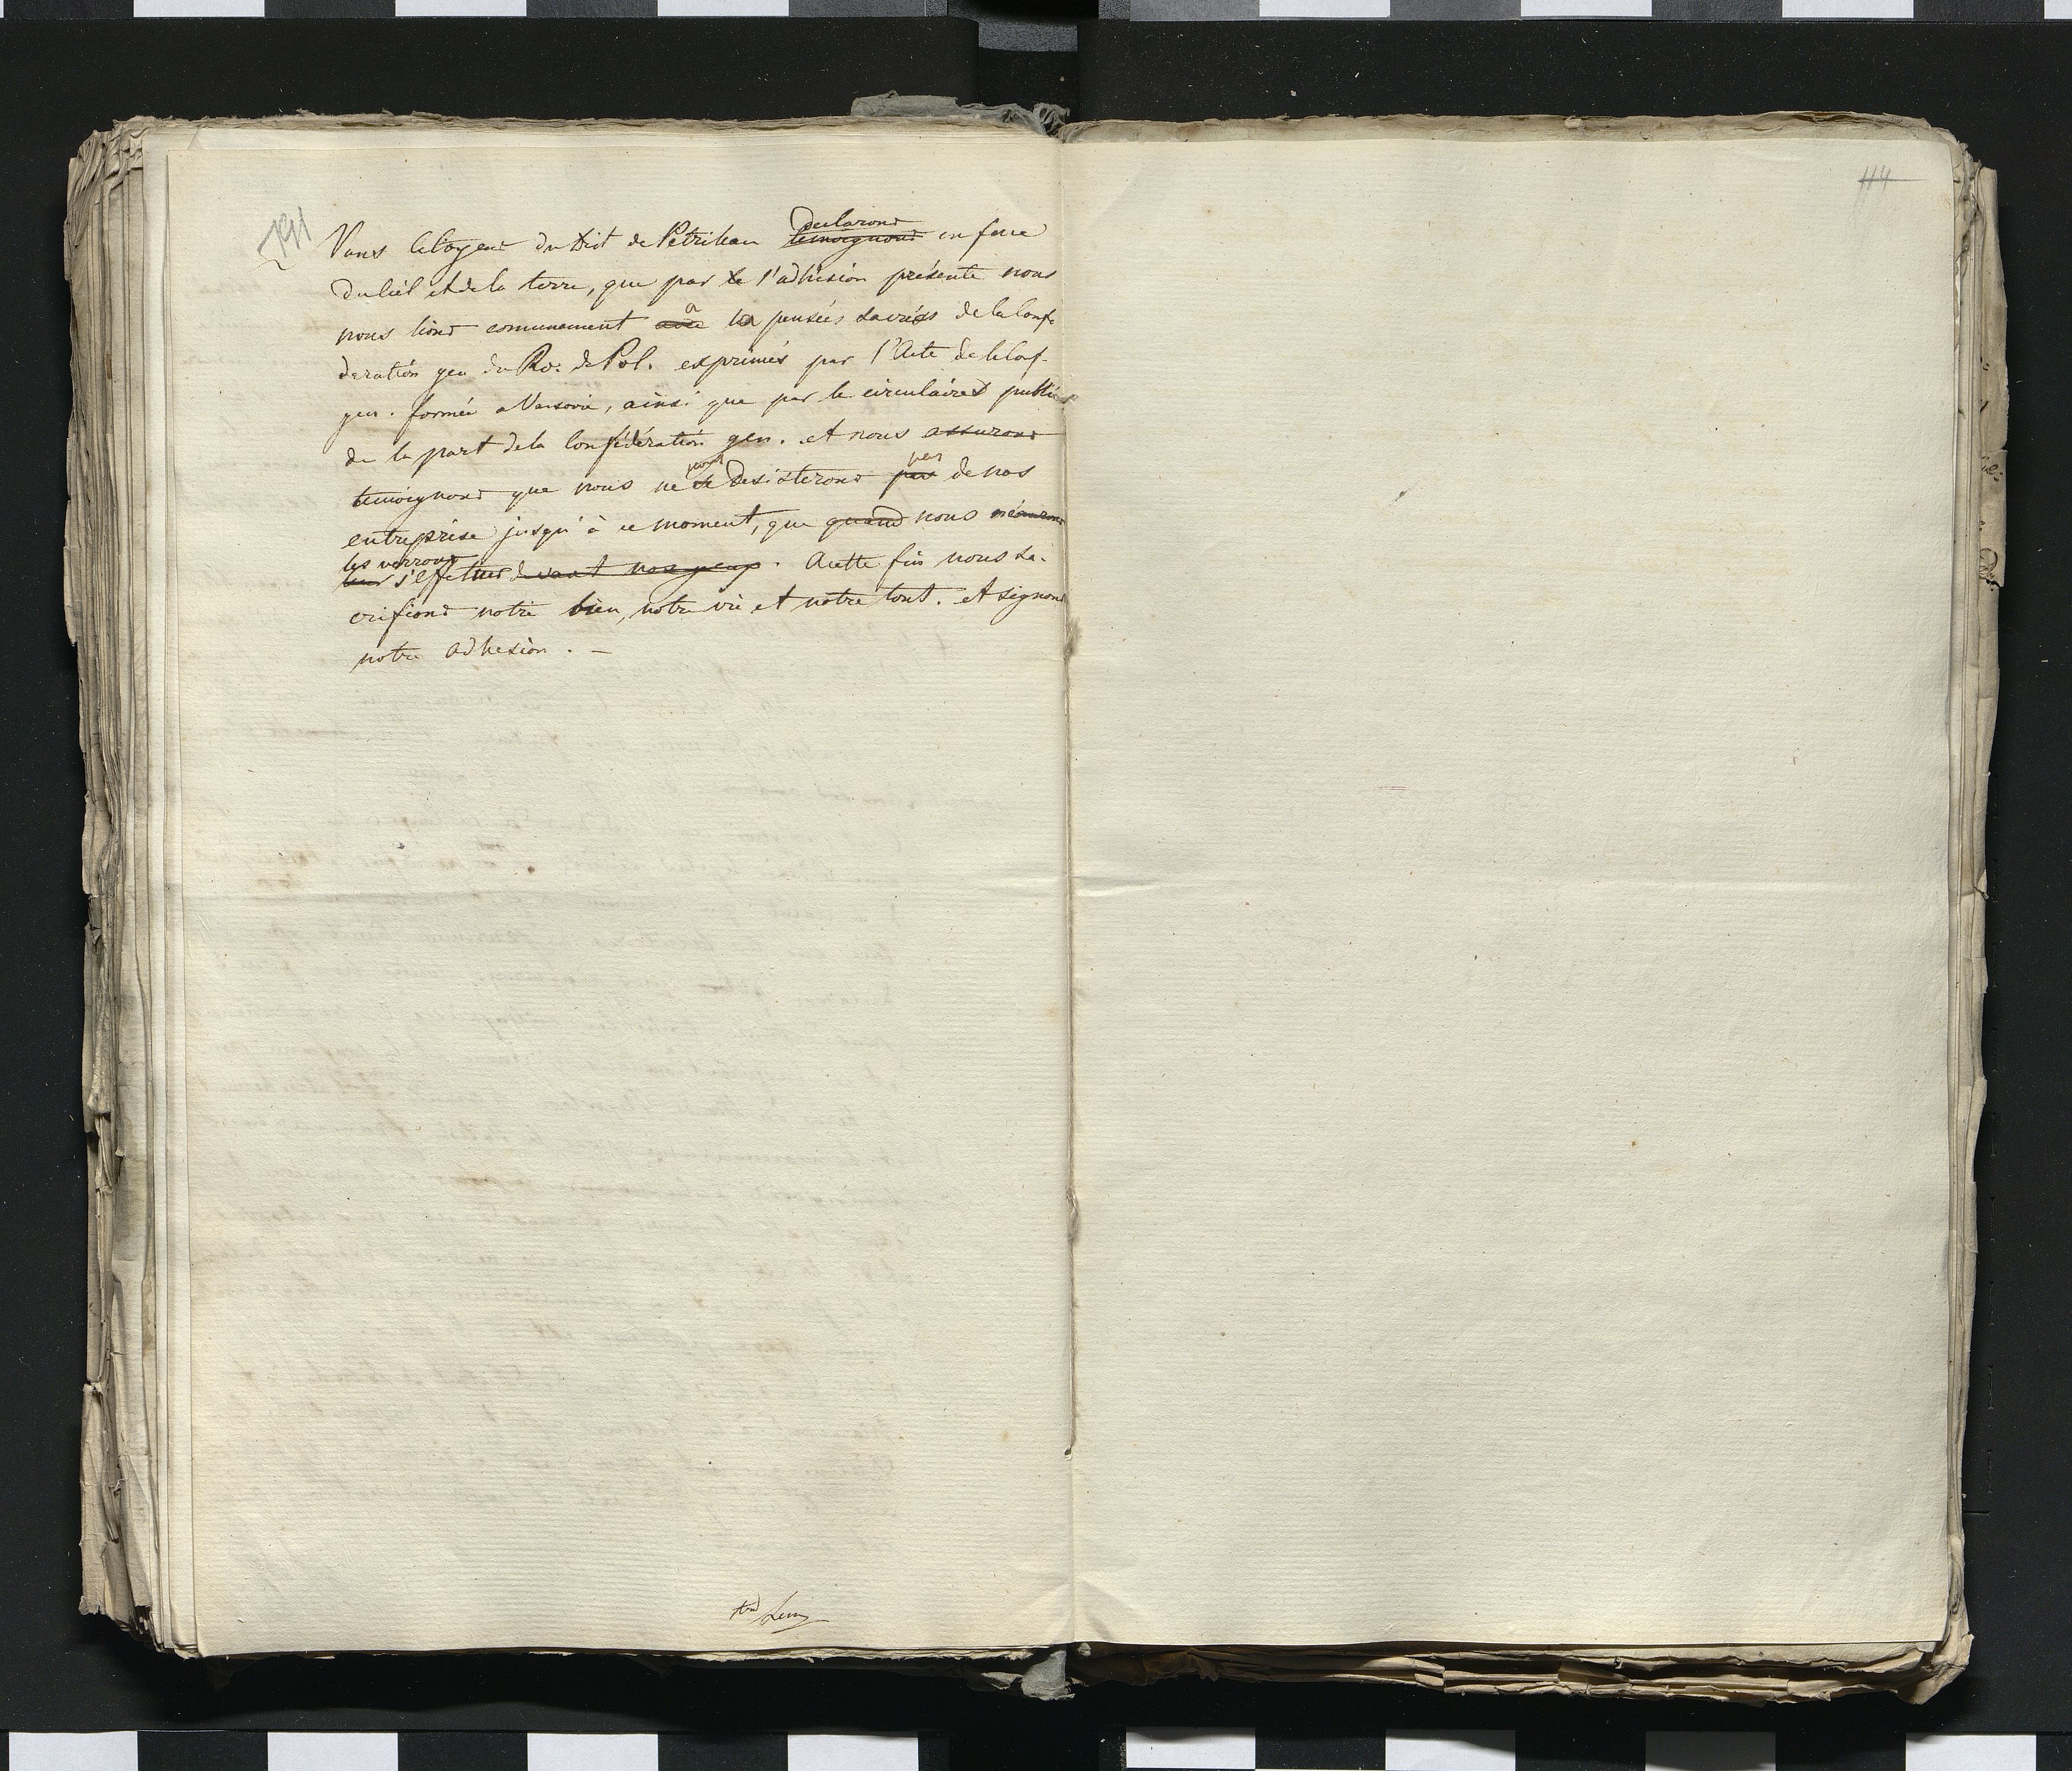 191
114
declarons
Nous Citoyens du Dist de Petrikau temoignons en face
du ciel et de la terre, que par le l'adhésion présente nous
a
nous lions comunement avec la pensées sacrées de la Conf.
deration gen du Ro. de Pol. exprimés par l'Acte de la Conf.
gen. formée a Varsovie, ainsi que par le circulaires publiés
de la part de la Confédération gen. et nous assurons
temoignons que nous ne desisterons pas de nos
entreprise jusqu'à ce moment, que quand nous
les verrons
s'effetuer devant nos yeux. A cette fin nous sa-
crifions notre bien, notre vie et notre tout. et signons
notre adhesion. —